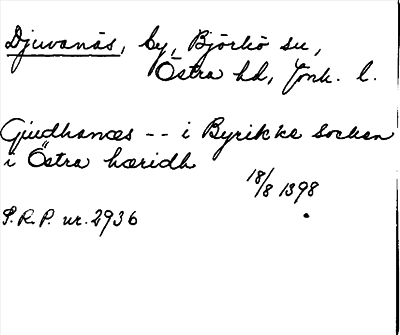 Djuvanäs, by, Björkö sn,
Östra hd, Jönk. l.
Giudhanæs -- i Byrikke socken
i Östra hæridh
18/8 1398
S.R.P. nr. 2936